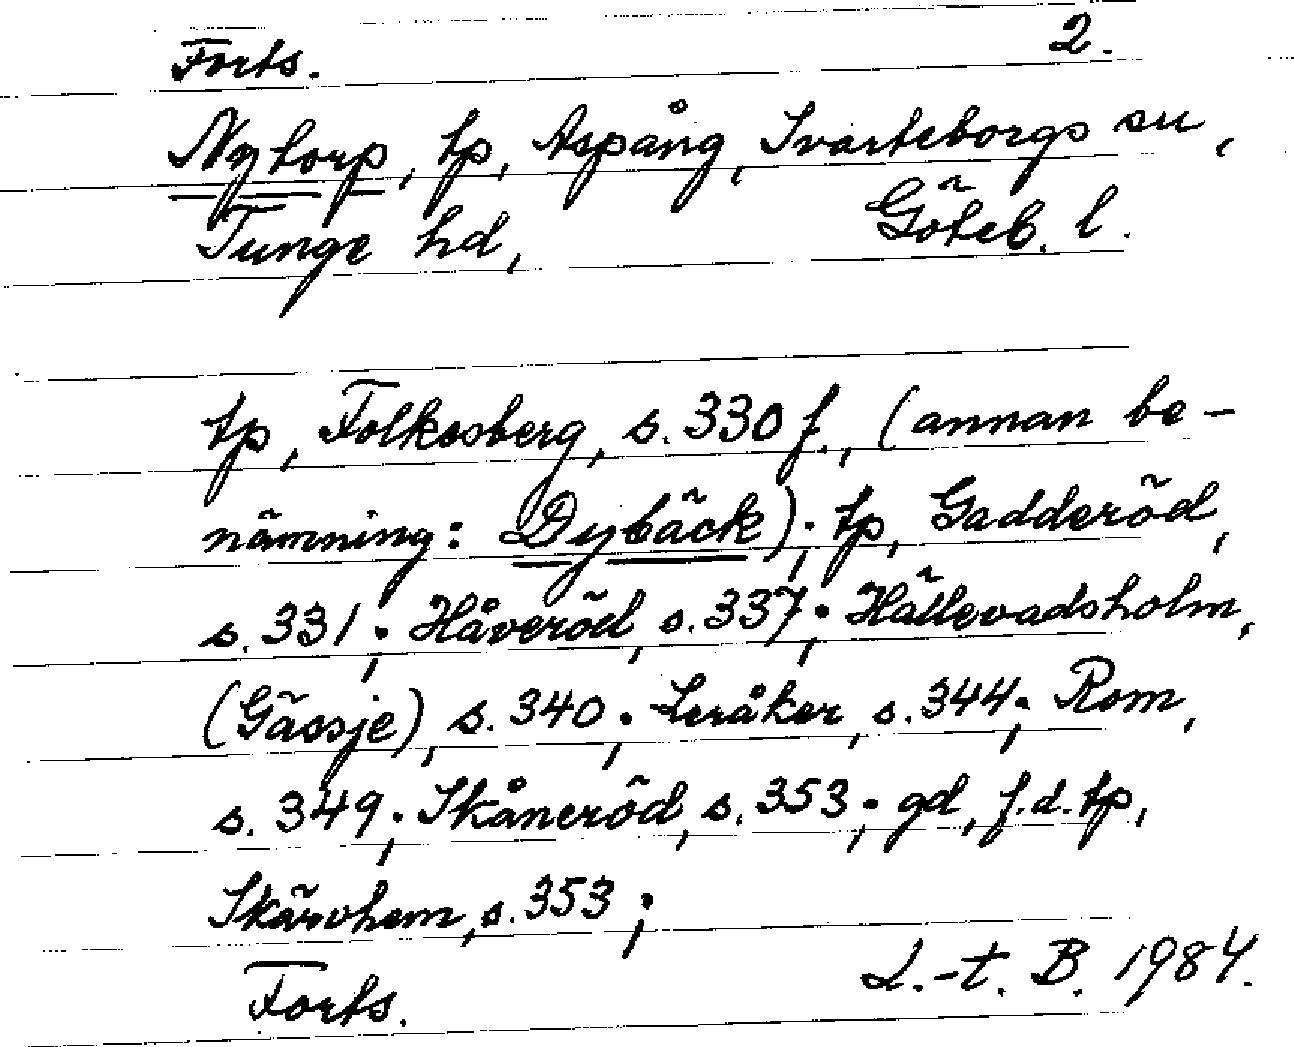 Forts. 2.
Nytorp, tp, Aspång, Svarteborgs sn,
Tunge hd, Göteb. l.
tp, Folkesberg, s. 330 f., (annan be-
nämning: Dybäck); tp, Gadderöd,
s. 331; Håveröd, s. 337; Hällevadsholm,
(Gässje), s. 340; Leråker, s. 344; Rom,
s. 349; Skåneröd, s. 353; gd, f.d. tp,
Skärvhem, s. 353;
Forts. L.-t. B. 1984.